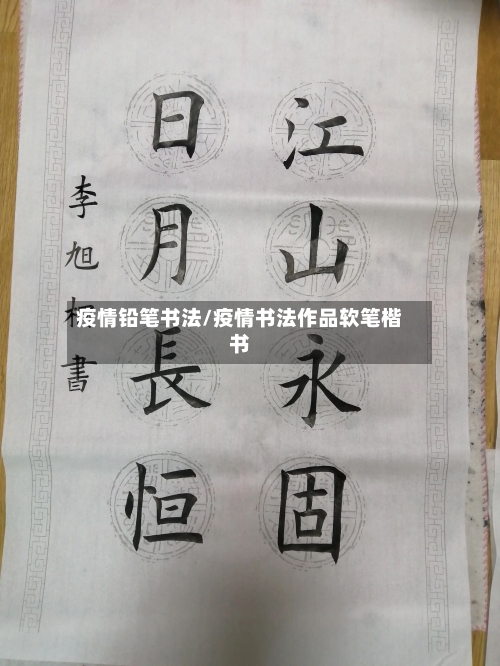 江山永固
日月長恒
李旭桓書
疫情铅笔书法/疫情书法作品软笔楷
书